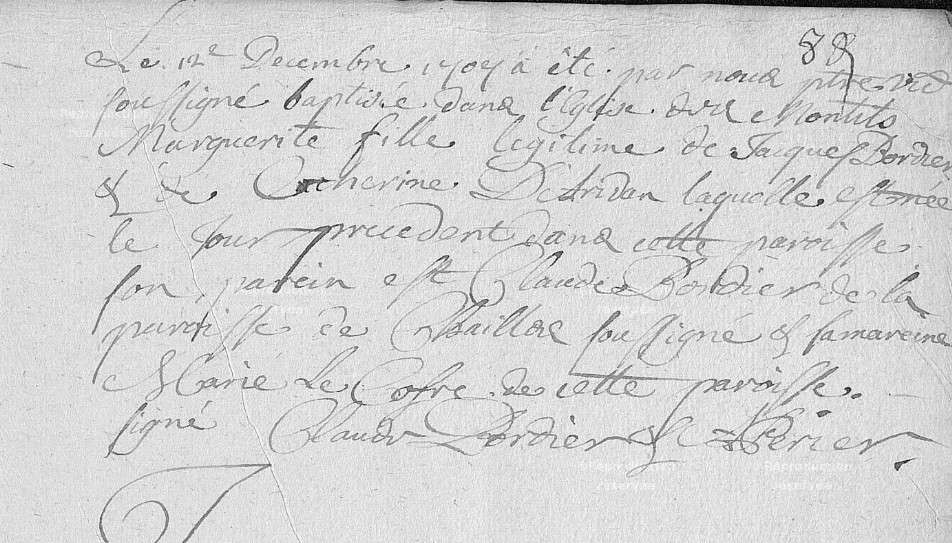 88
Le 12e Decembre 1707 a été par nous ptre vic
soussigné baptisée dans l'Eglise des Montils
Marguerite fille legitime de Jacques Bordier
& de Catherine laquelle est née
le Jour precedent dans cette paroisse
son parein est Claude Bordier de la
paroisse de Chailles soussigné & sa mareine
Marie Le Cofre de cette paroisse.
signé Claude Bordier